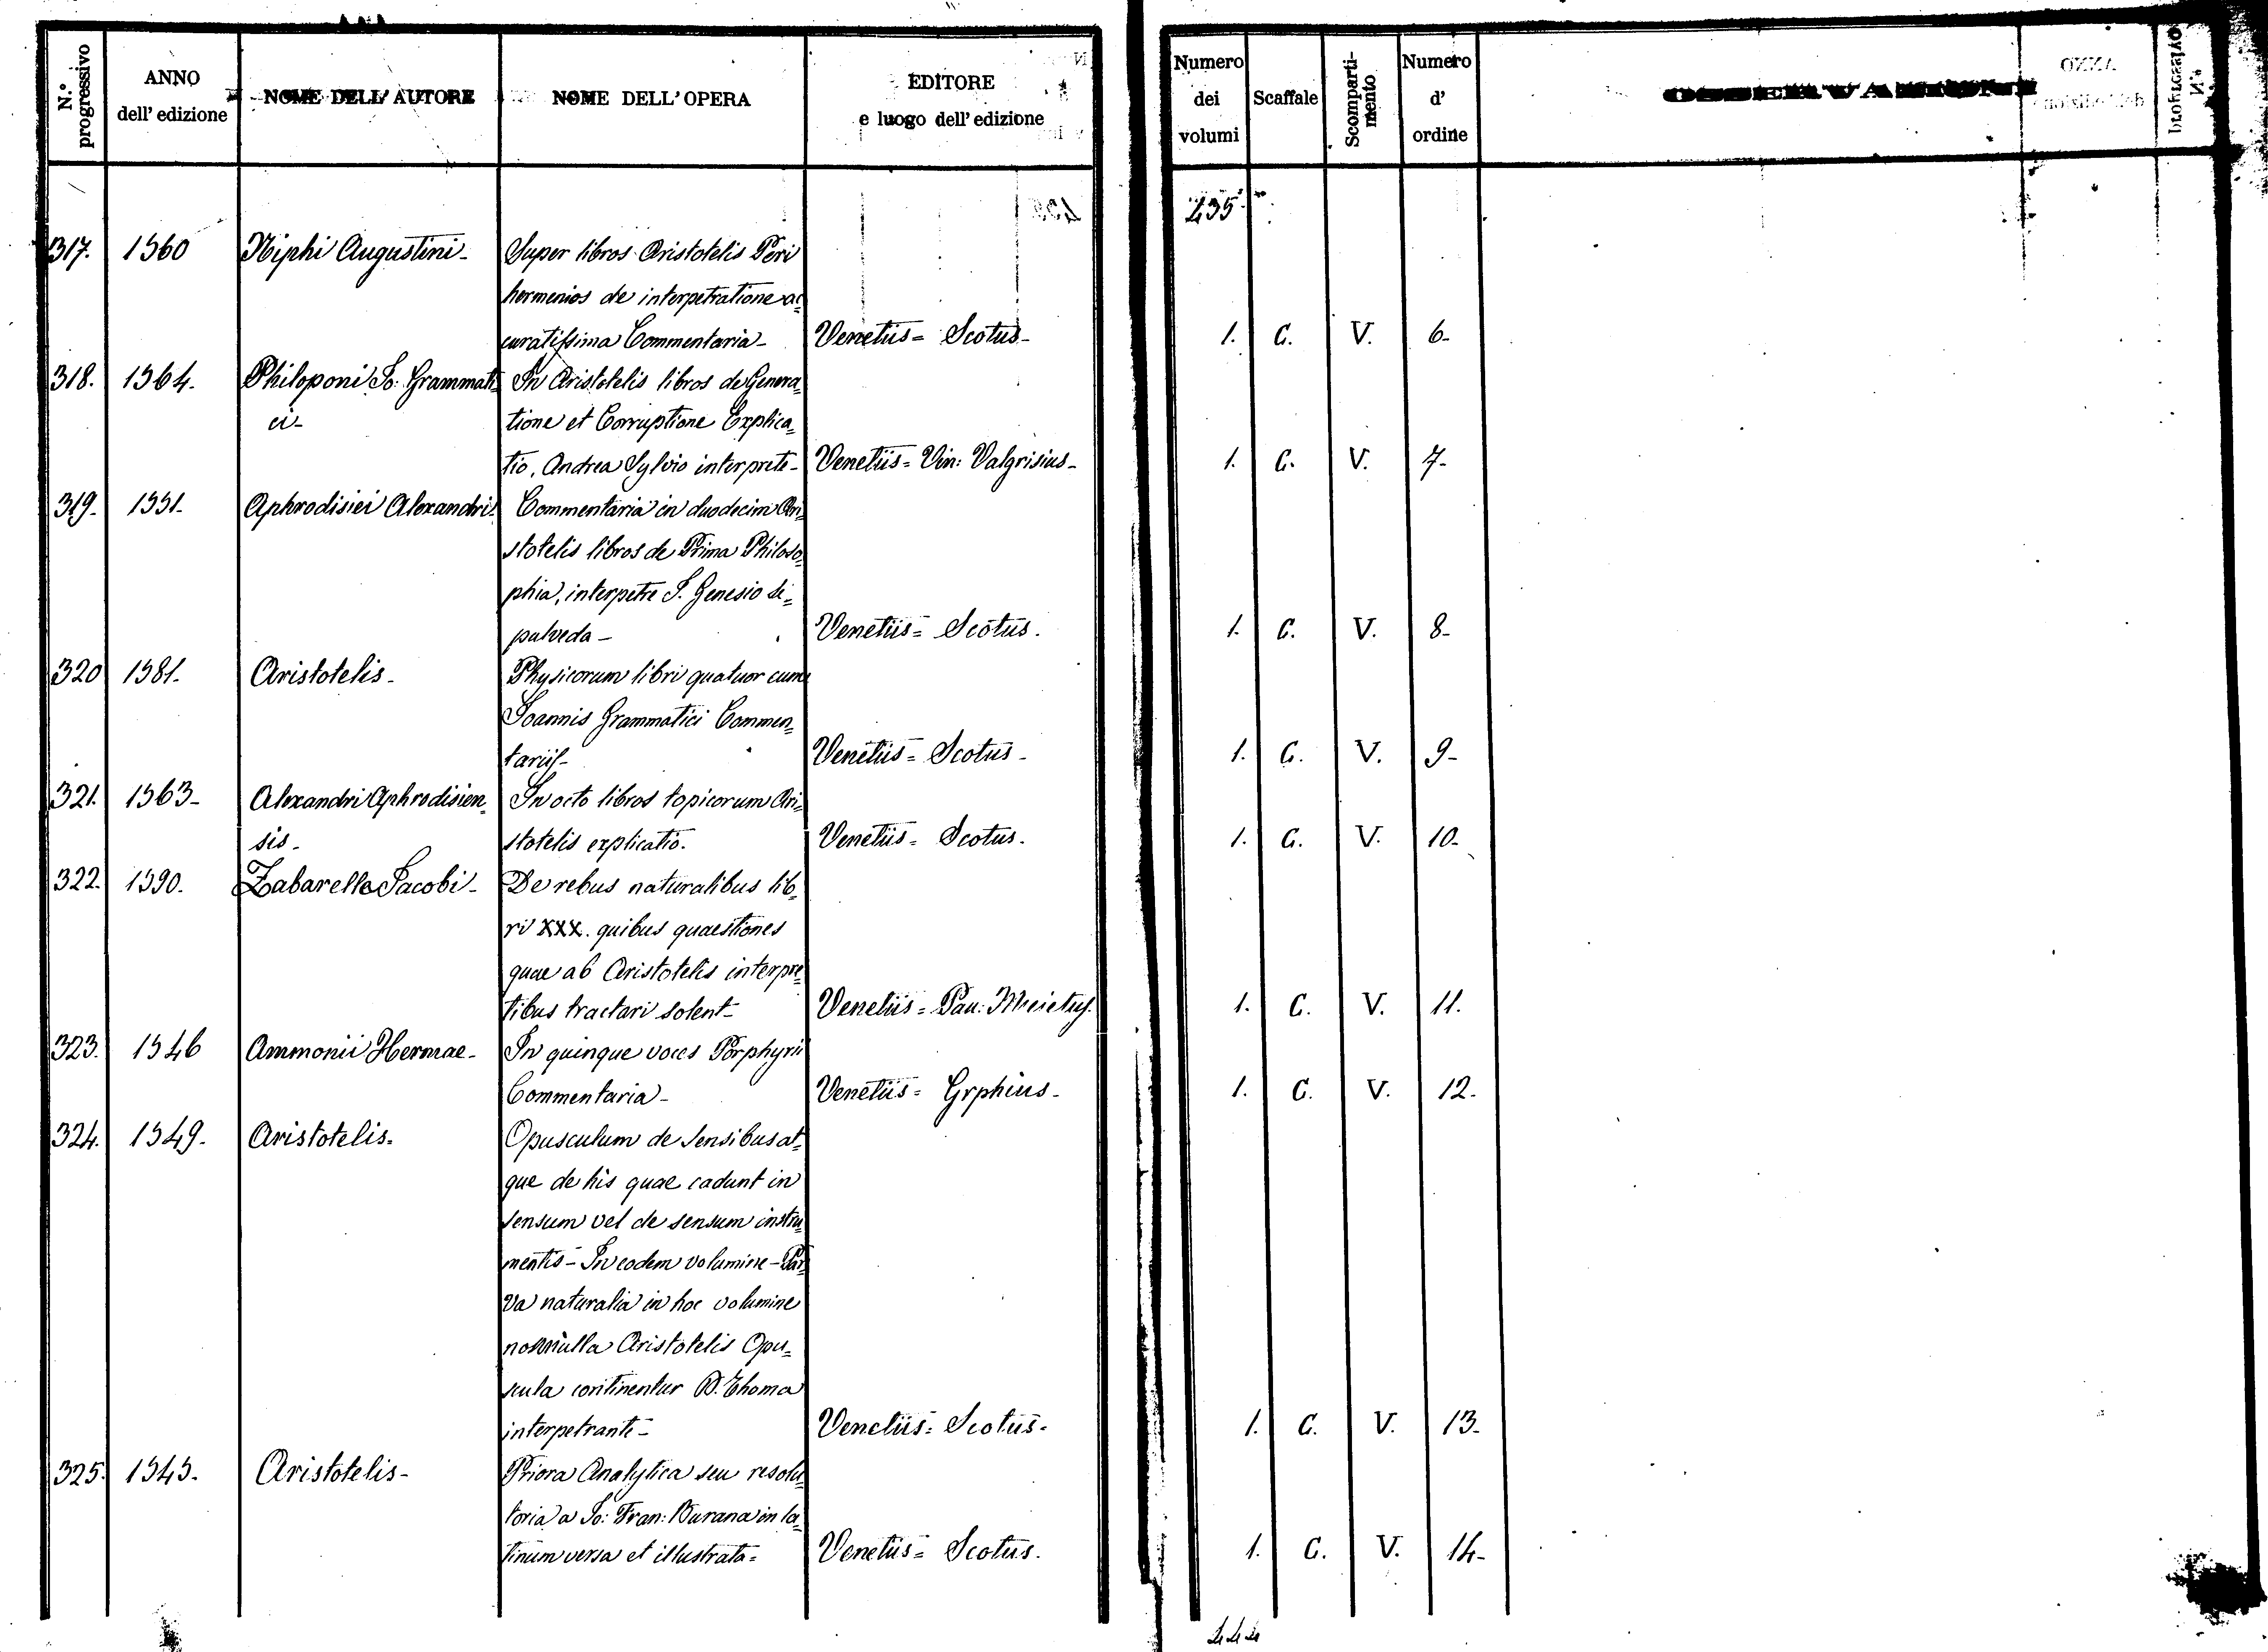 N.° progressivo
ANNO dell' edizione
NOME DELL' AUTORE
NOME DELL' OPERA
EDITORE e luogo dell' edizione
Numero dei volumi
Scaffale
Scomparti-mento
Numero d' ordine
435
317. 1560 Niphi Augustini- Super libros Aristotelis Peri
hermenios de interpetratione ac=
curatissima Commentaria- Venetiis= Scotus- 1. C. V. 6-
318. 1564. Philoponi Io: Grammati= In Aristotelis libros de Genera=
ci- tione et Corruptione Explica=
tio, Andrea Sylvio interprete- Venetiis= Vin: Valgrisius- 1. C. V. 7-
319- 1551- Aphrodisiei Alexandri- Commentaria in duodecim Ari=
stotelis libros de Prima Philoso=
phia, interpetre I. Genesio Se=
pulveda- Venetiis= Scotus. 1. C. V. 8-
320 1581- Aristotelis- Physicorum libri quatuor cum
Ioannis Grammatici Commen=
tariis- Venetiis= Scotus- 1. C. V. 9-
321. 1563- Alexandri Aphrodisien= In octo libros topicorum Ari=
sis- stotelis explicatio. Venetiis= Scotus. 1. C. V. 10-
322. 1590. Zabarella Jacobi- De rebus naturalibus lib=
ri XXX. quibus quaestiones
quae ab Aristotelis interpre=
tibus tractari solent- Venetiis= Pau: Meietus. 1. C. V. 11.
323. 1546 Ammonii Hermae- In quinque voces Porphyrii
Commentaria- Venetiis= Grphius- 1. C. V. 12.
324. 1549. Aristotelis. Opusculum de Sensibus at=
que de his quae cadunt in
sensum vel de sensum instru=
mentis- In eodem volumine- Par=
va naturalia in hoc volumine
nonnulla Aristotelis Opu=
scula continentur D. Thoma
interpetrante- Venetiis= Scotus- 1. C. V. 13-
325. 1545. Aristotelis- Priora Analytica seu resolu=
toria a Io: Fran: Burana in la=
tinum versa et illustrata= Venetiis= Scotus. 1. C. V. 14-
444